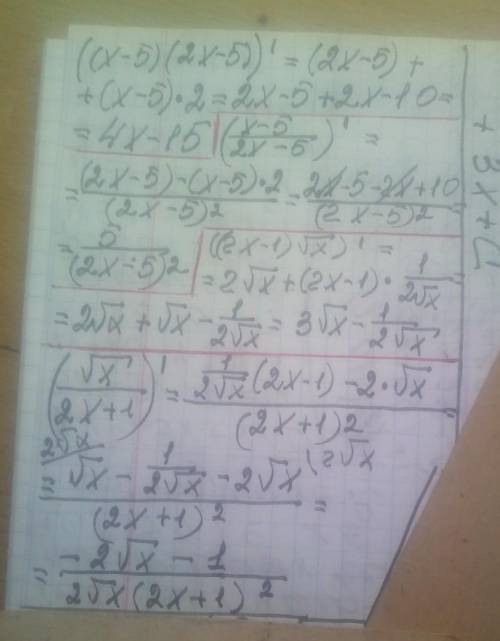 ((x-5)(2x-5))' = (2x-5) +
+ (x-5)·2 = 2x-5+2x-10 =
= 4x-15 (x-5/2x-5)' =
= (2x-5)-(x-5)·2/(2x-5)² = 2x-5-2x+10/(2x-5)² =
= 5/(2x-5)² ((2x-1)√x)' =
= 2√x + (2x-1)· 1/2√x =
= 2√x + √x - 1/2√x = 3√x - 1/2√x
(√x/2x+1)' = 1/2√x (2x-1) - 2·√x/(2x+1)²
2√x/ (2√x
= √x - 1/2√x - 2√x/(2x+1)² =
= -2√x - 1/2√x(2x+1)²
+ 3x +